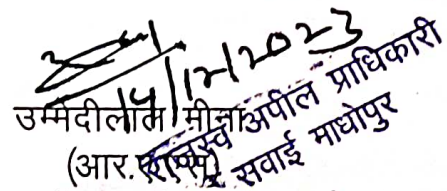 14/12/2023
उम्मेदीलाल मीना
(आर.ए.एस)
राजस्व अपील प्राधिकारी
सवाई माधोपुर